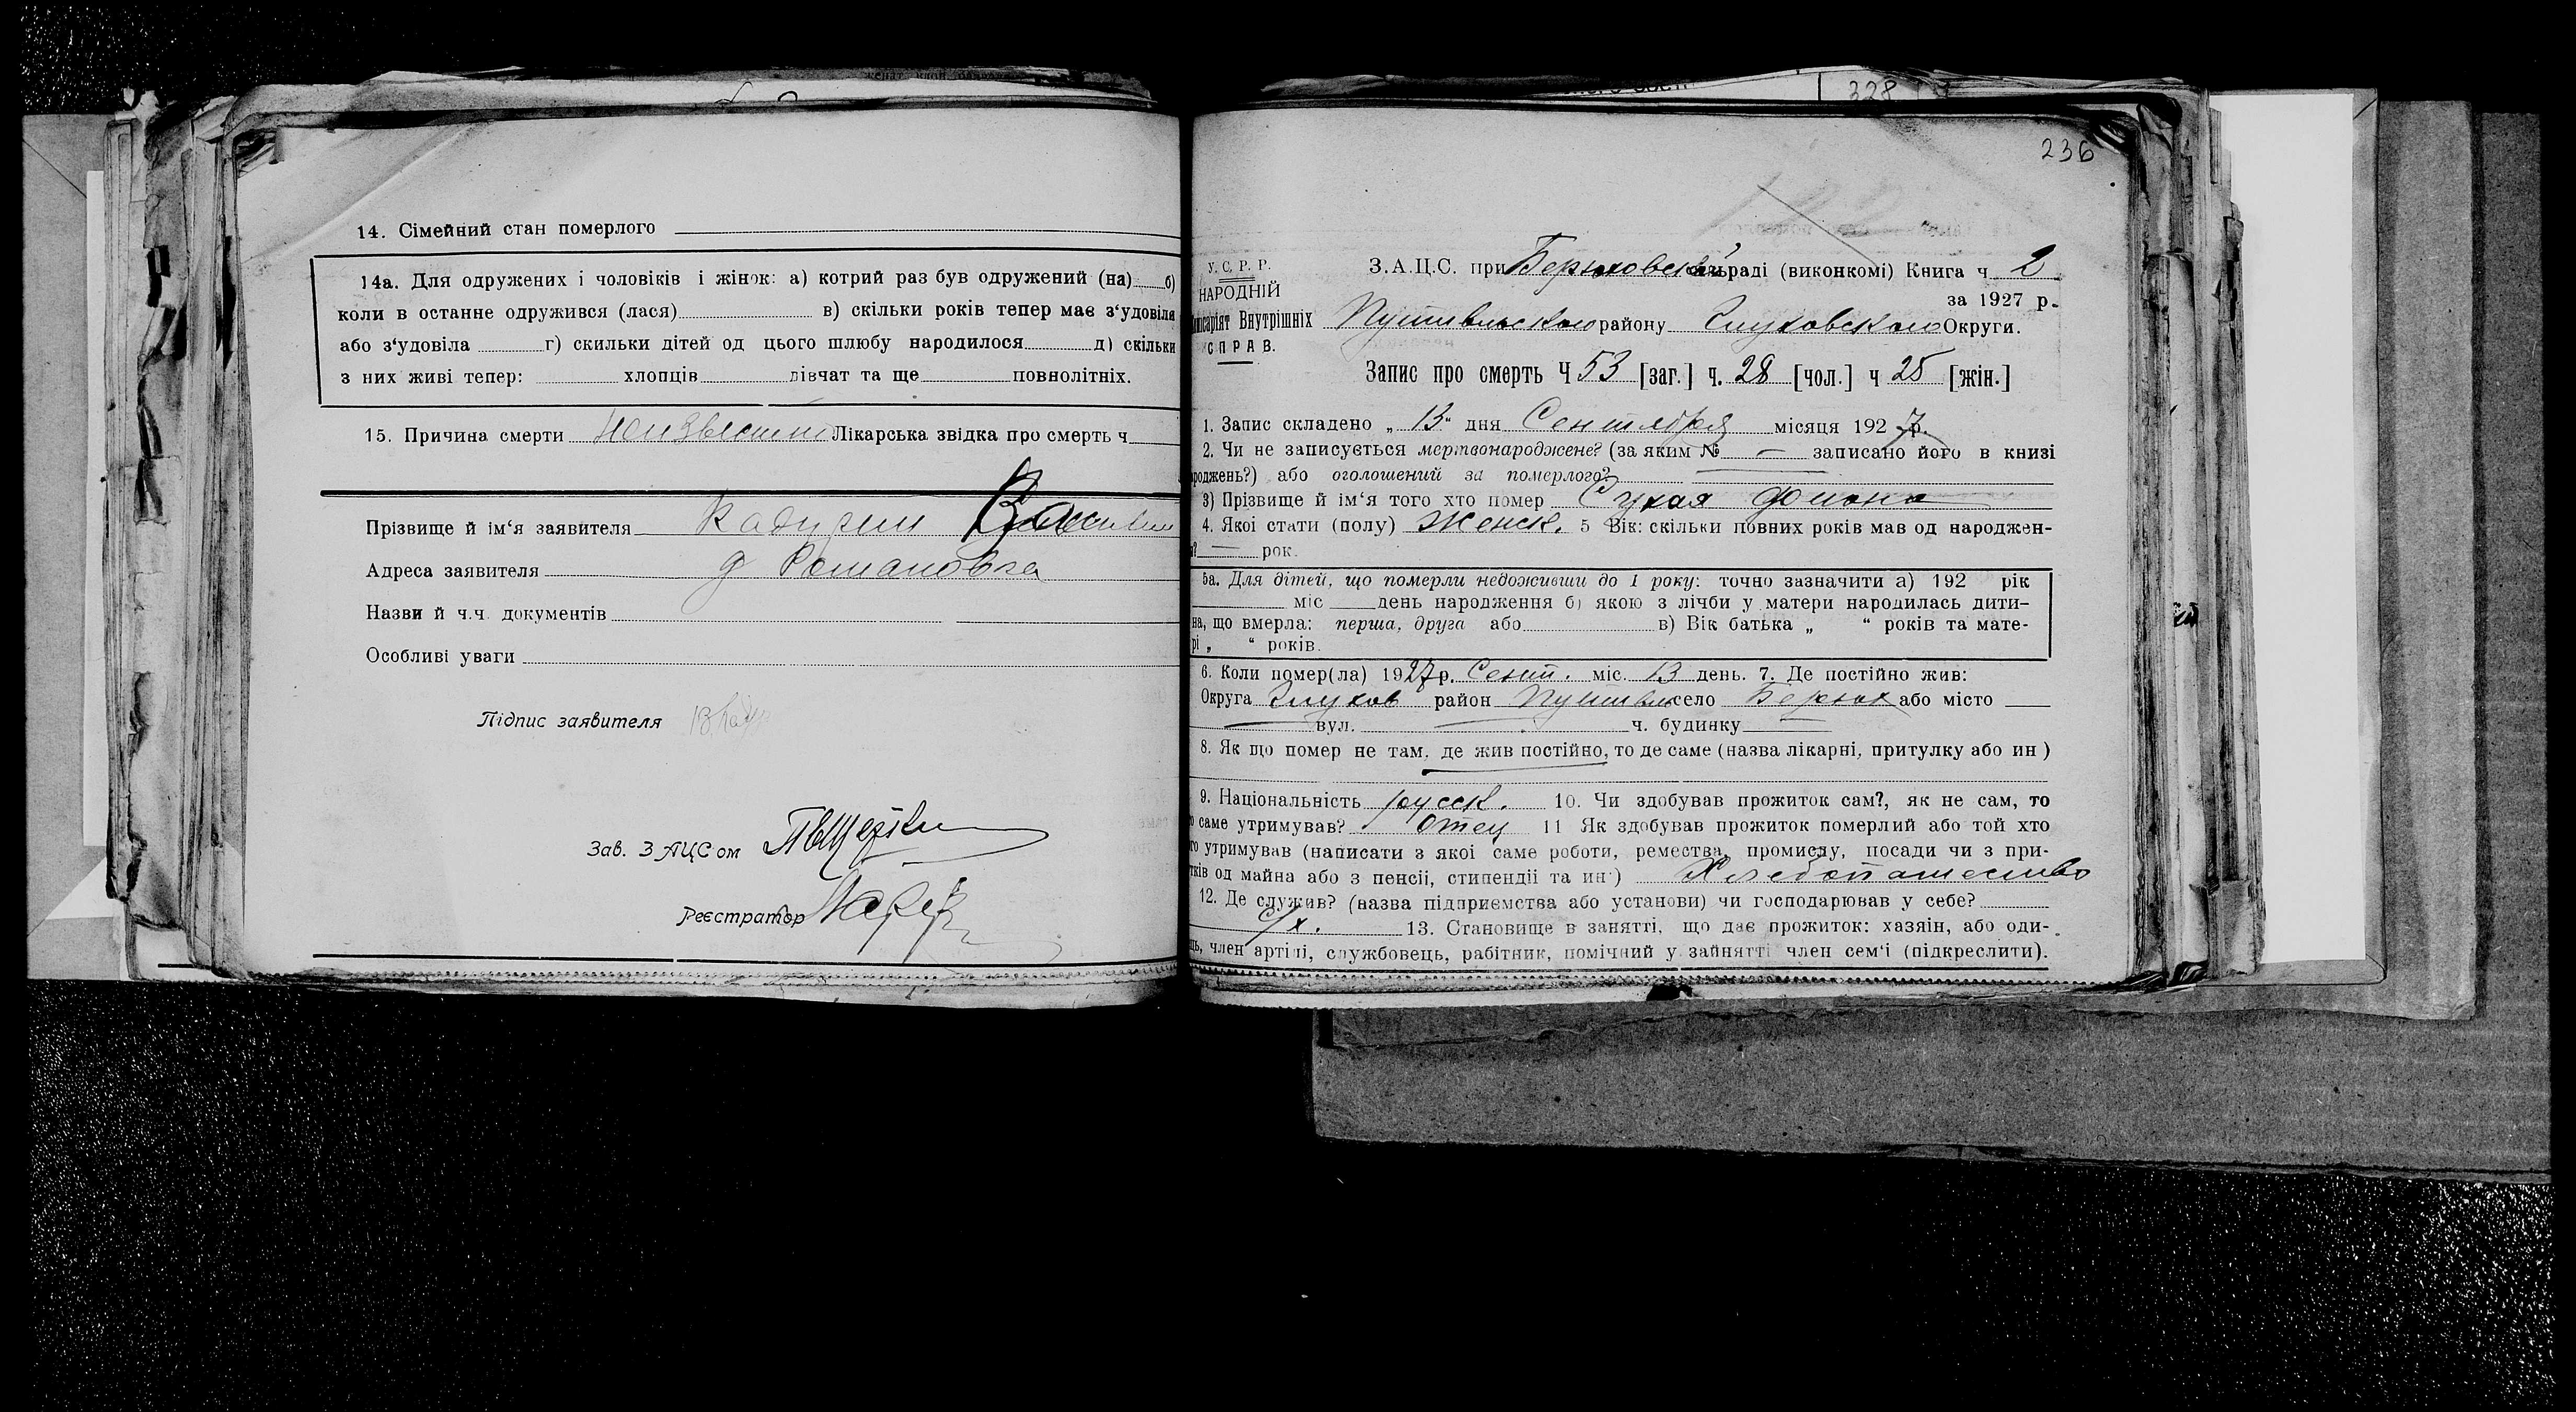 14. Сімейний стан померлого
14а. Для одружених і чоловіків і жінок: а) котрий раз був одружений (на) б)
коли в останне одружився (лася) в) скільки років тепер має з‘удовіла
або з‘удовіла г) скильки дітей од цього шлюбу народилося д) скільки
з них живі тепер: хлопців дівчат та ще повнолітніх.
15. Причина смерти Неизвестно Лікарська звідка про смерть ч
Прізвище й ім‘я заявителя Кадурин
Адреса заявителя д Романовка
Назви й ч.ч. документів
Особливі уваги
Підпис заявителя
Зав. ЗАЦСом
Реєстратор
328
236
У. С. Р. Р.
НАРОДНІЙ
Внутрішніх
СПРАВ.
З.А.Ц.С. при Берюховск. раді (виконкомі) Книга ч 2
за 1927 р.
Путивльского району Глуховского Округи.
Запис про смерть Ч 53 [заг.] ч. 28 [чол.] ч 25 [жін.]
1. Запис складено „ 13 “ дня Сентября місяця 1927 р.
2. Чи не записується мертвонароджене? (за яким № — записано його в книзі
роджень?) або оголошений за померлого?
3) Прізвище й ім‘я того хто помер Сухая
4. Якої стати (полу) Женск. 5 Вік: скільки повних років мав од народжен-
— рок.
5а. Для дітей, що померли недоживши до 1 року: точно зазначити а) 192 рік
міс день народження б) якою з лічби у матери народилась дити-
на, що вмерла: перша, друга або в) Вік батька „ “ років та мате-
рі „ “ років.
6. Коли помер(ла) 1927 р. Сент. міс. 13 день. 7. Де постійно жив:
Округа Глухов район Путивль село Берюх або місто —
— вул. — ч. будинку —
8. Як що помер не там, де жив постійно, то де саме (назва лікарні, притулку або ин )
9. Національність русск. 10. Чи здобував прожиток сам?, як не сам, то
саме утримував? Отец 11 Як здобував прожиток померлий або той хто
го утримував (написати з якої саме роботи, ремества, промислу, посади чи з при-
тків од майна або з пенсії, стипендії та ин ) Хлебопашество
12. Де служив? (назва підприємства або установи) чи господарював у себе?
с/х. 13. Становище в занятті, що дає прожиток: хазяін, або оди-
ць, член артілі, службовець, рабітник, помічний у зайнятті член сем‘і (підкреслити).